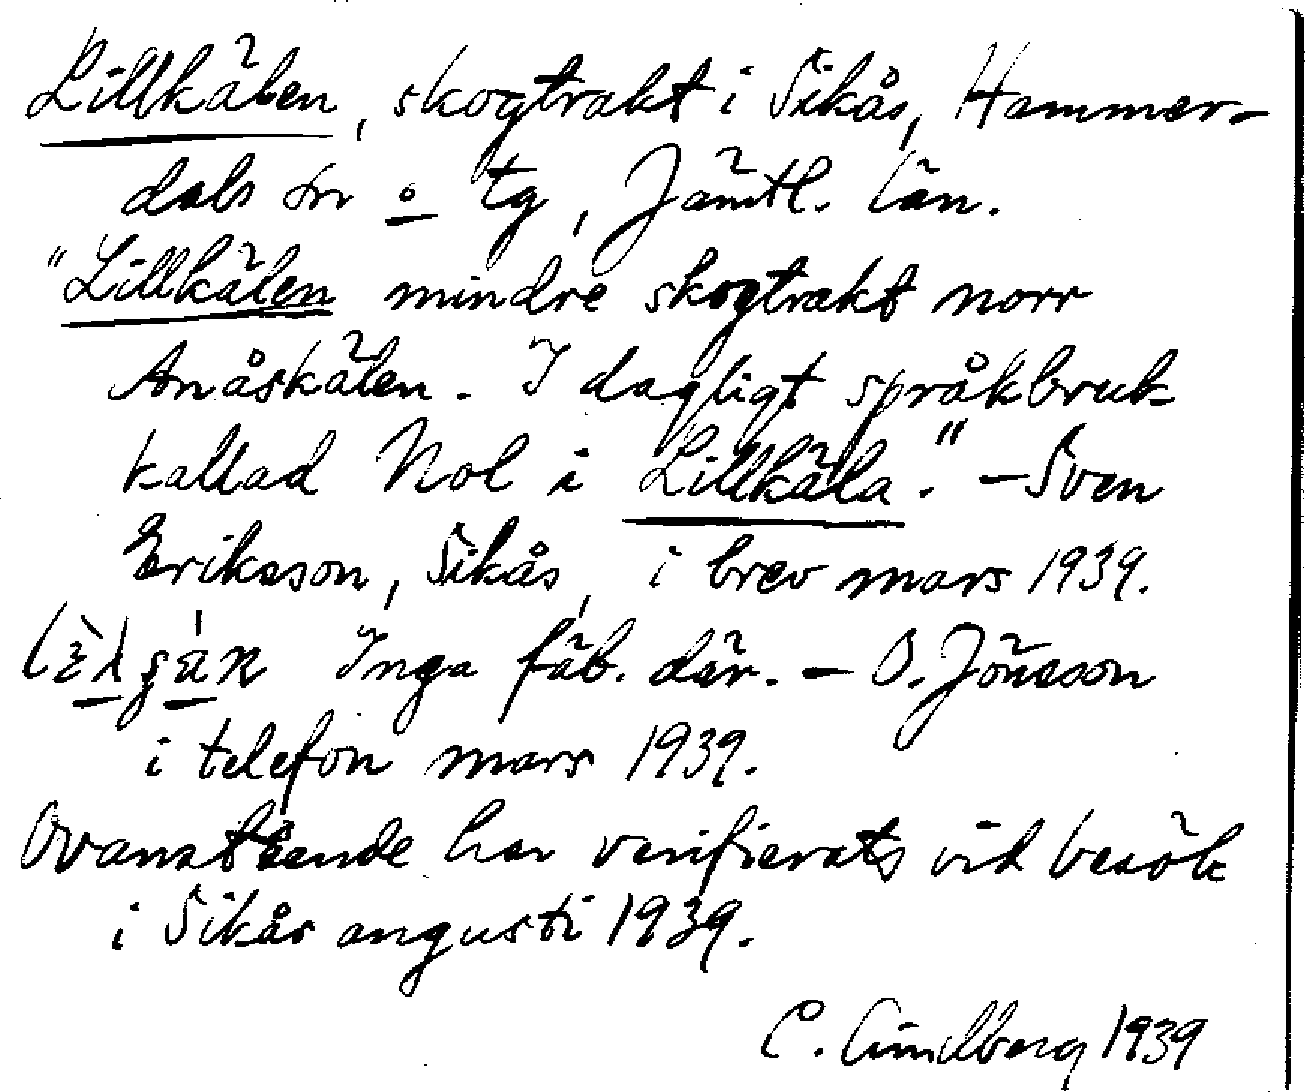 Lillkälen, skogtrakt i Sikås, Hammer-
dals sn o tg, Jämtl. län.
"Lillkälen mindre skogtrakt norr
Anåskälen. I dagligt språkbruk
kallad Nol i Lillkäla." – Sven
Eriksson, Sikås, i brev mars 1939.
Inga fäb. där. – O. Jönsson
i telefon mars 1939.
Ovanstående har verifierats vid besök
i Sikås augusti 1939.
C. Lindberg 1939